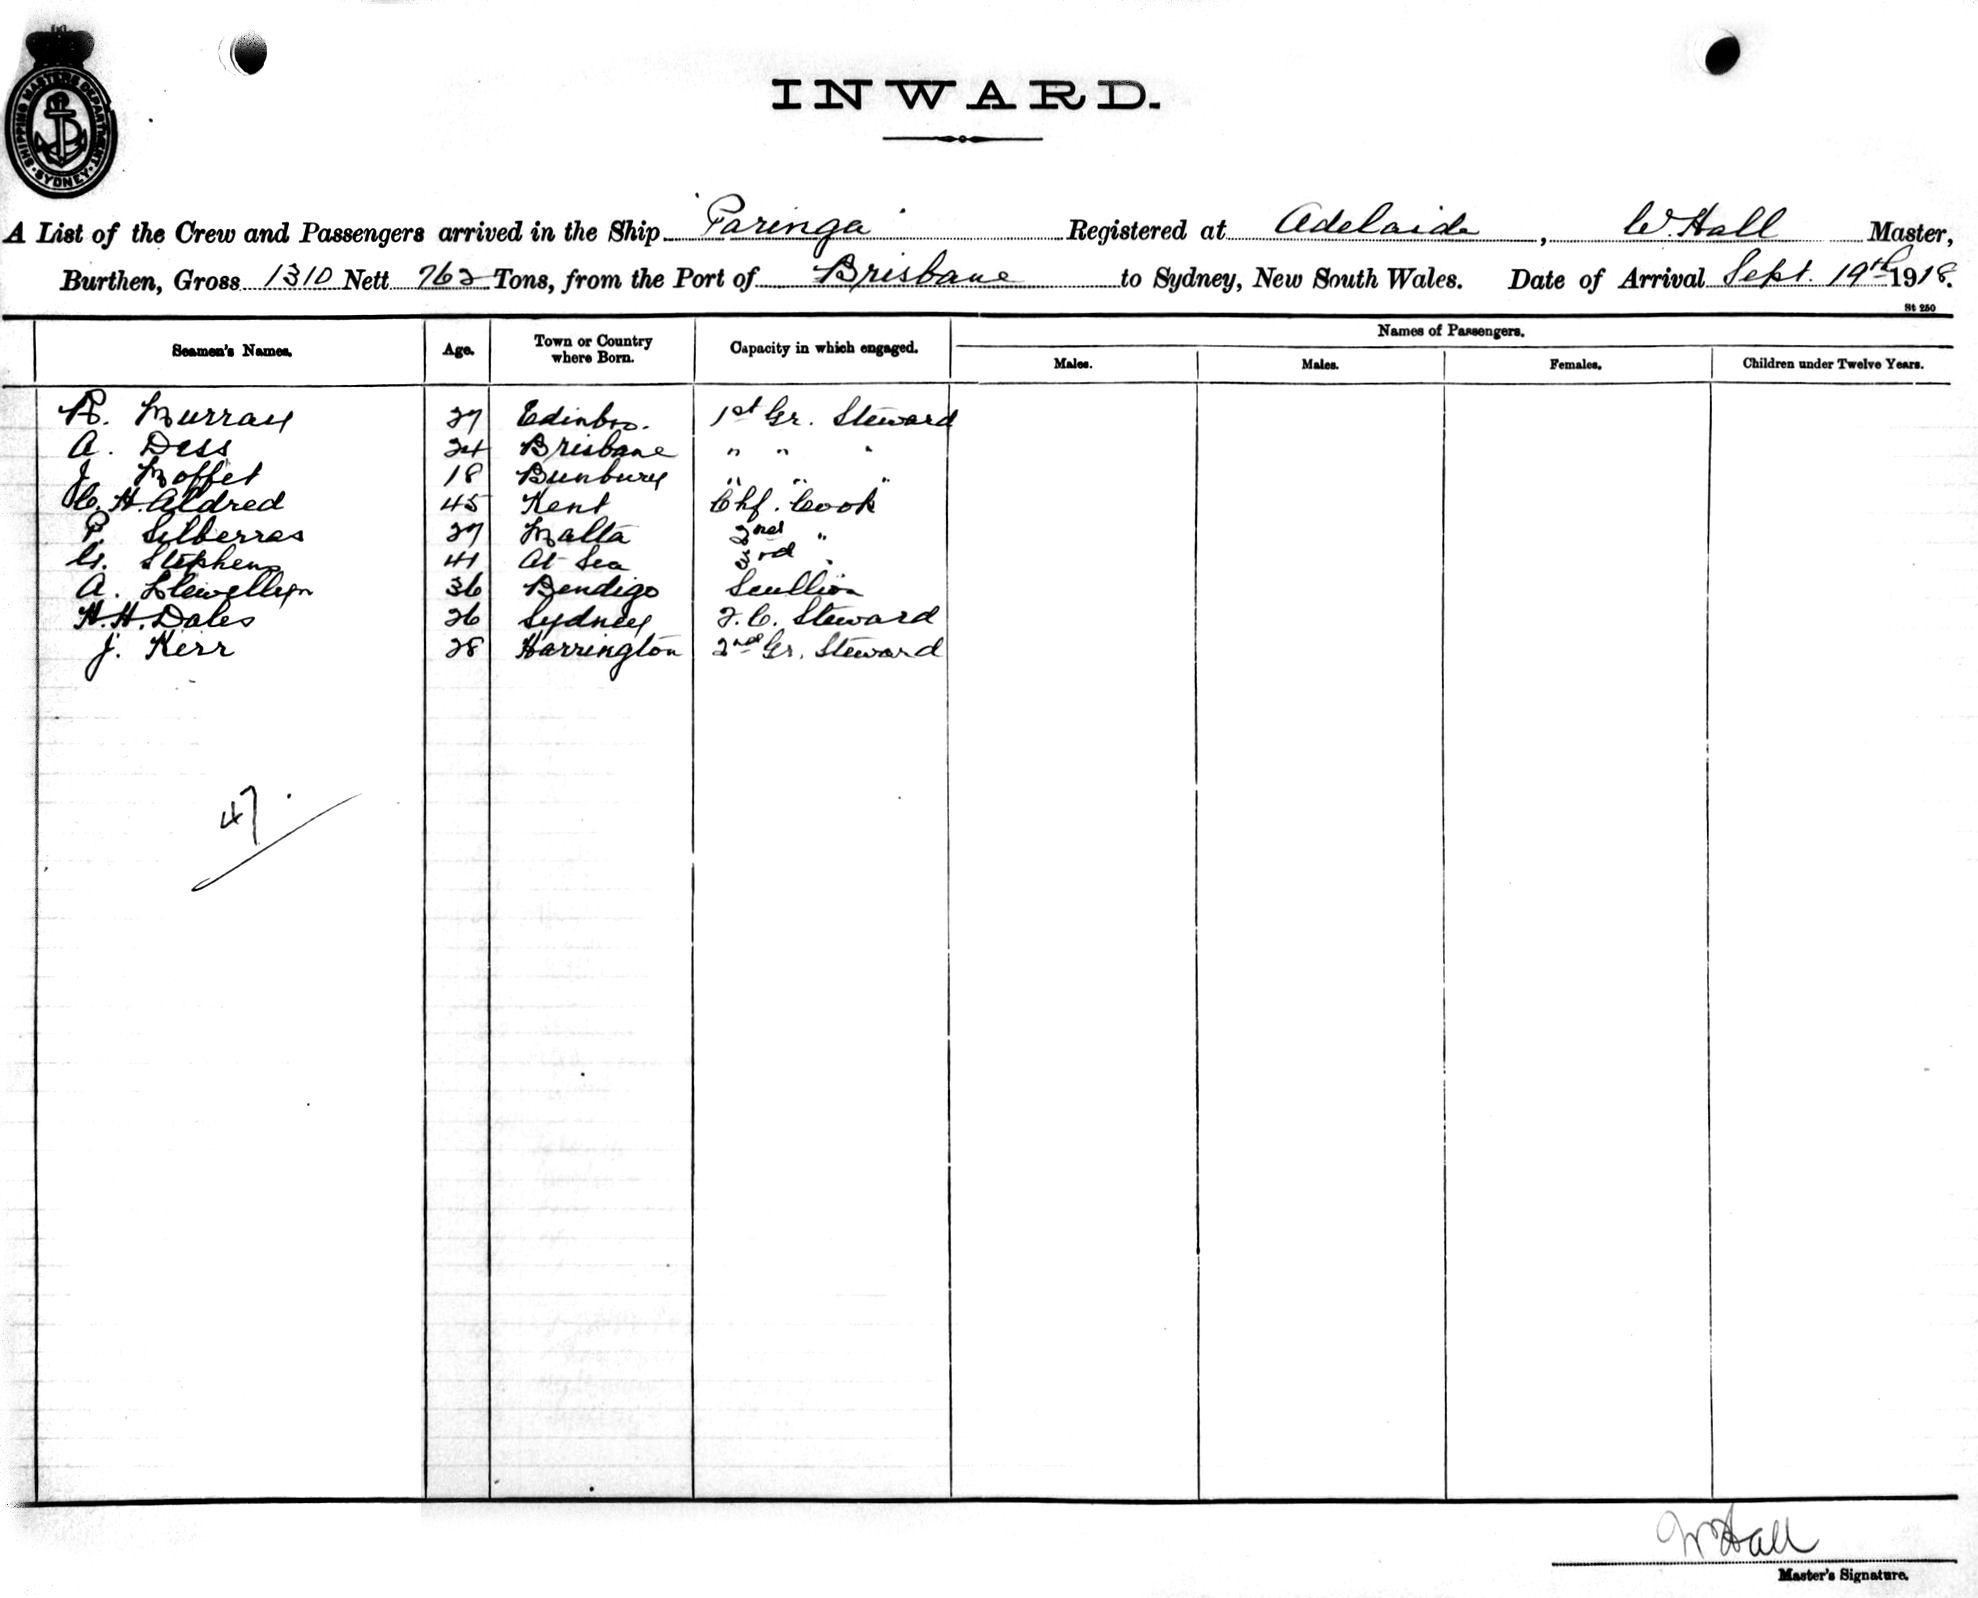 SHIPPING MASTERS DEPARTMENT
SYDNEY
INWARD.
A List of the Crew and Passengers arrived in the Ship "Paringa" Registered at Adelaide, W. Hall Master,
Burthen, Gross 1310 Nett 762 Tons, from the Port of Brisbane to Sydney, New South Wales. Date of Arrival Sept. 19th 1918.
St 250
Seamen's Names. Age. Town or Country where Born. Capacity in which engaged. Names of Passengers.
Males. Males. Females. Children under Twelve Years.
R. Murray 27 Edinbro. 1st Gr. Steward
A. Dess 24 Brisbane " " "
J. Moffet 18 Bunbury " " "
C. H. Aldred 45 Kent Chf. Cook
P. Silberras 27 Malta 2nd "
G. Stephens 41 At Sea 3rd "
A. Llewellyn 36 Bendigo Scullion
H. H. Dales 26 Sydney F. C. Steward
J. Kerr 28 Harrington 2nd Gr. Steward
47
W Hall
Master's Signature.